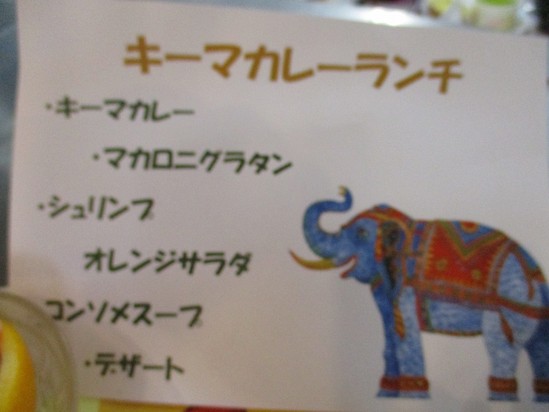 キーマカレーランチ
・キーマカレー
・マカロニグラタン
・シュリンプ
オレンジサラダ
コンソメスープ
・デザート